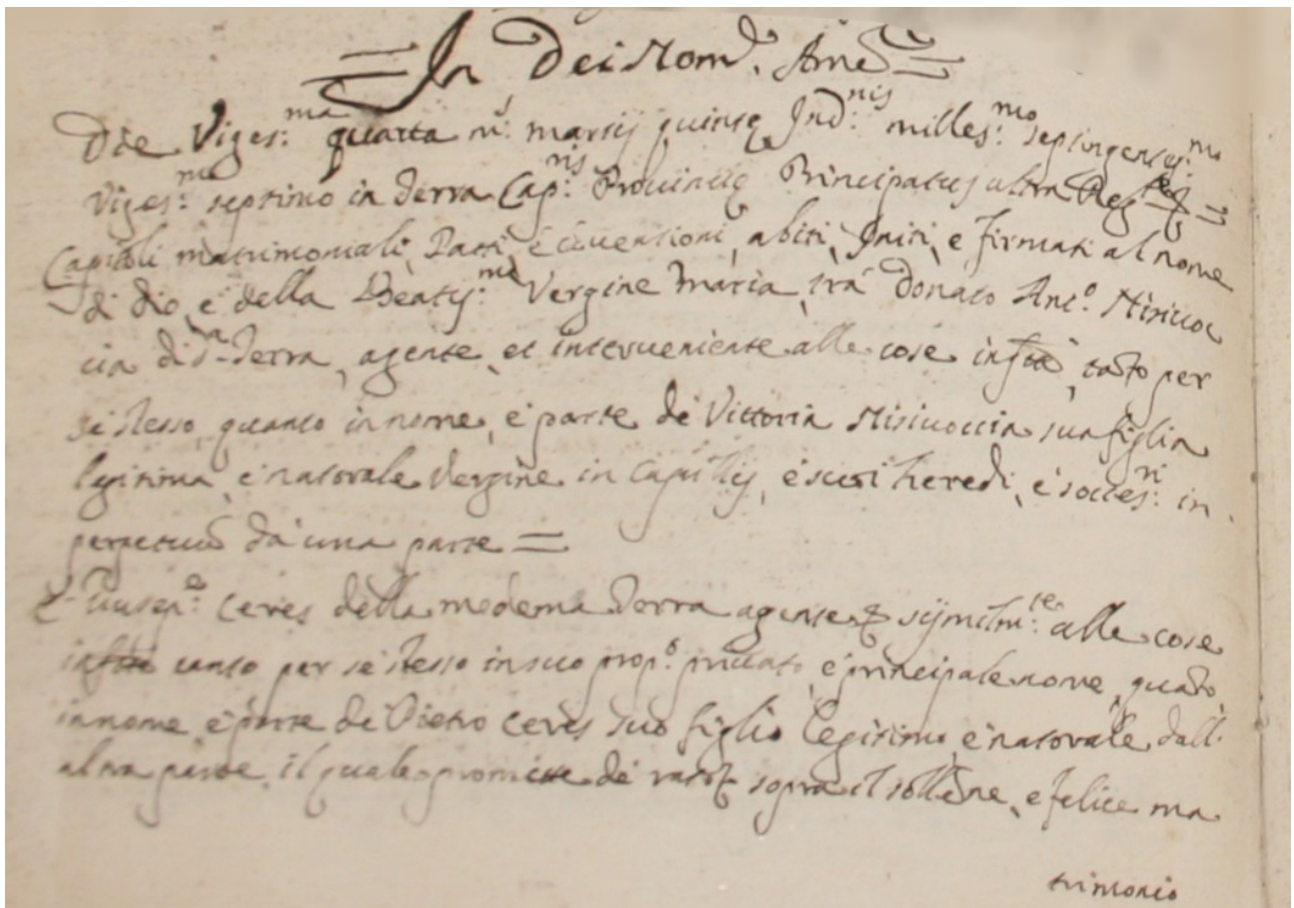 = In Dei Nom.e Ame =
Die Viges:ma quarta m:s martij quinte Ind:nis milles:mo septingentes:mo
Viges:mo septimo in Terra Cap:nis Provincie Principatus ultra
Capitoli matrimoniali, Patti, è Cõventioni, abiti, Initi, e firmati al nome
di dio, e della Beatiss:ma Vergine Maria, trà Donato Ant.o Misiuoc
cia di d.a Terra, agente, et interueniente alle cose infrẽ, tãto per
se stesso, quanto in nome, è parte de Vittoria Misiuoccia sua figlia
legitima, è naturale Vergine in Capillis, è suoi heredi, è socces:ri in
perpetuũ da una parte =
E Giusep:e Ceres della medema Terra agente & sijmilm:te alle cose
infrẽ tanto per sè stesso in suo prop:o priuato, è principale nome, quãto
in nome è parte de Pietro Ceres suo figlio legitimo, è naturale, dall'
altra parte, il quale promette de rato & sopra il sollẽne, e felice ma
trimonio